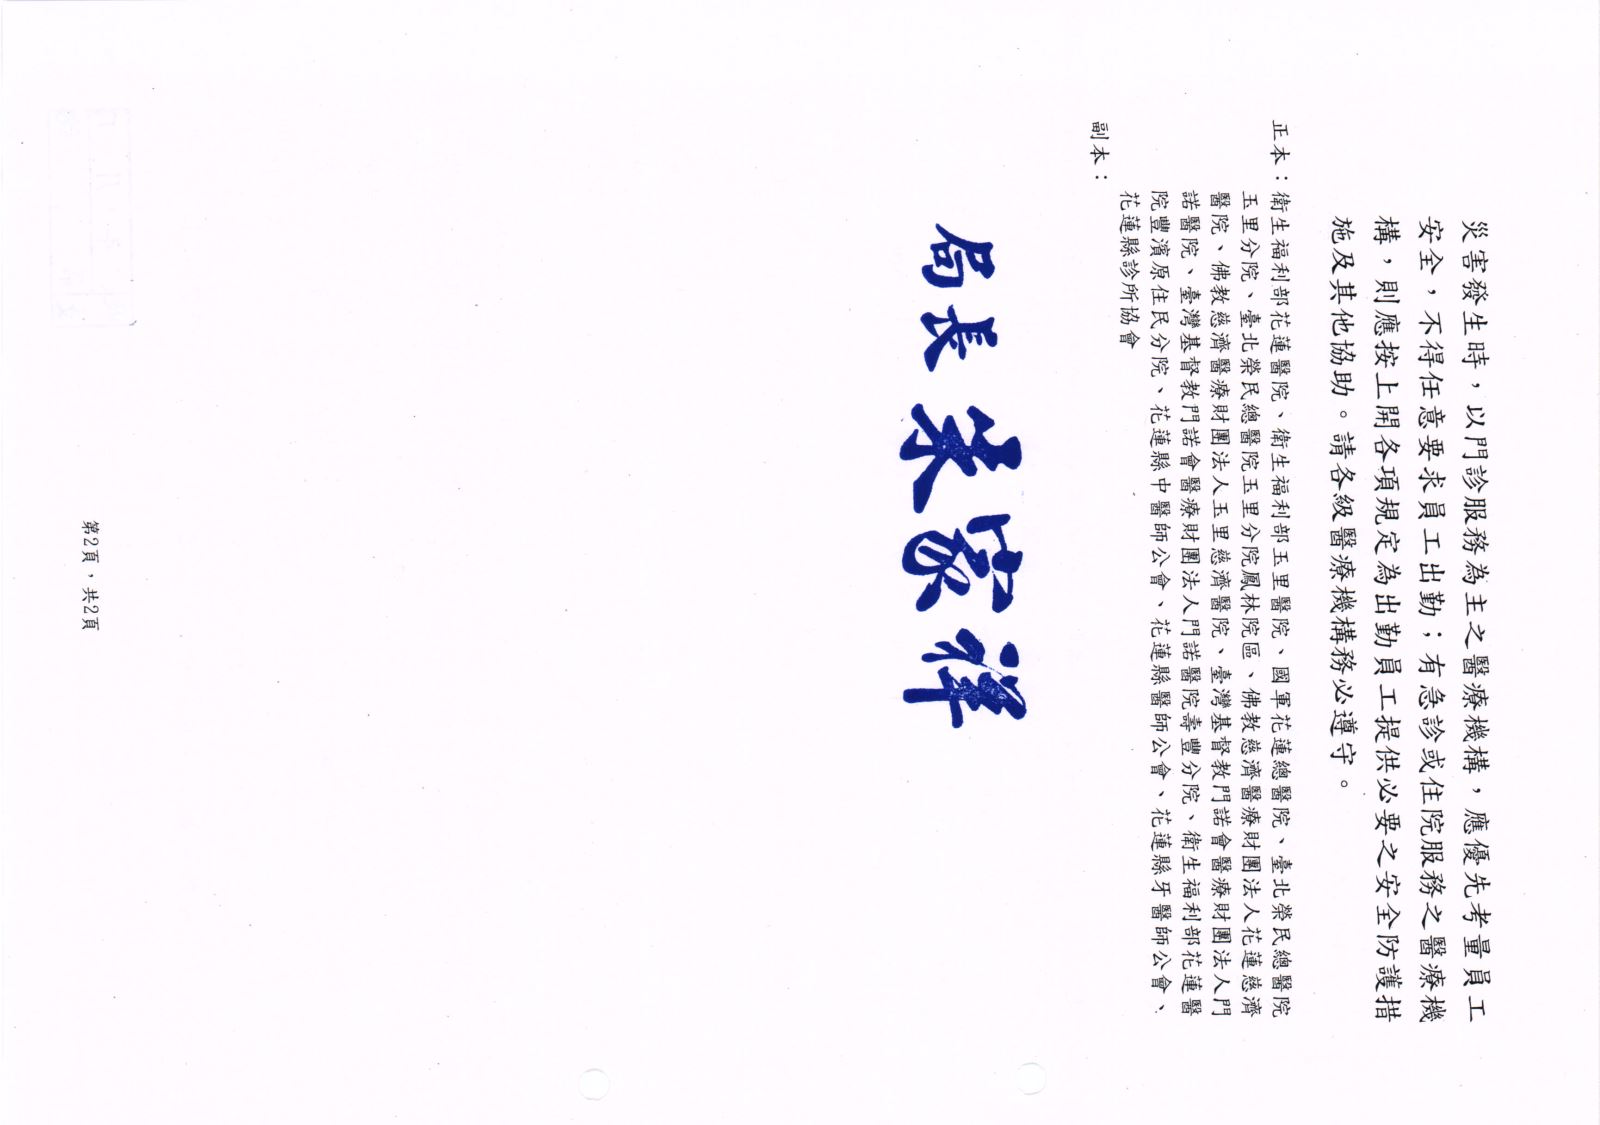 災害發生時，以門診服務為主之醫療機構，應優先考量員工
安全，不得任意要求員工出勤；有急診或住院服務之醫療機
構，則應按上開各項規定為出勤員工提供必要之安全防護措
施及其他協助。請各級醫療機構務必遵守。
正本：衛生福利部花蓮醫院、衛生福利部玉里醫院、國軍花蓮總醫院、臺北榮民總醫院
玉里分院、臺北榮民總醫院玉里分院鳳林院區、佛教慈濟醫療財團法人花蓮慈濟
醫院、佛教慈濟醫療財團法人玉里慈濟醫院、臺灣基督教門諾會醫療財團法人門
諾醫院、臺灣基督教門諾會醫療財團法人門諾醫院壽豐分院、衛生福利部花蓮醫
院豐濱原住民分院、花蓮縣中醫師公會、花蓮縣醫師公會、花蓮縣牙醫師公會、
花蓮縣診所協會
副本：
局長 朱家祥
第2頁，共2頁